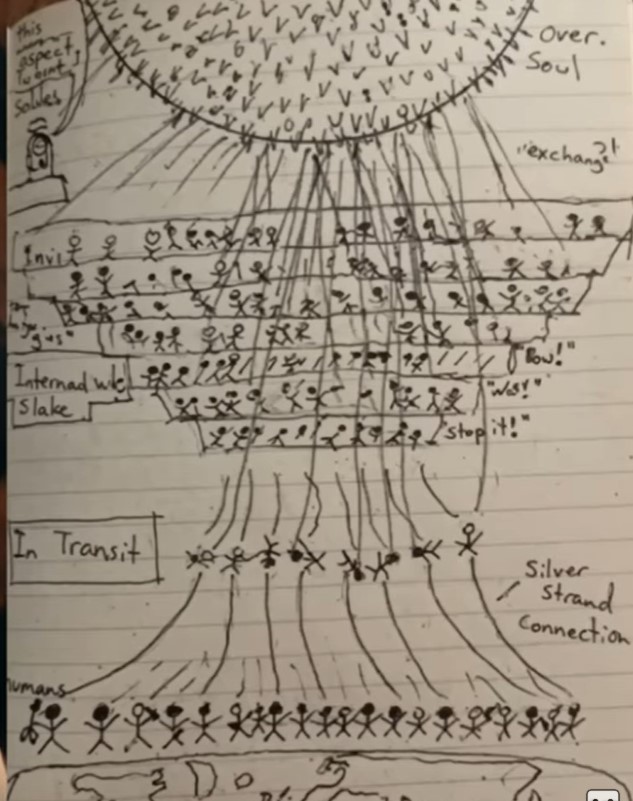 this
aspect,
Over.
Soul
"exchange!"
Invi
Internad
Slake
"Pow!"
"Stop it!"
In Transit
Silver
Strand
Connection
humans